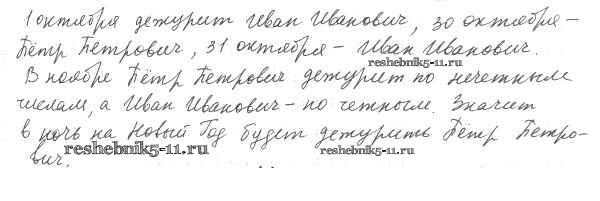 1 октября дежурит Иван Иванович, 30 октября –
Пётр Петрович, 31 октября – Иван Иванович.
reshebnik5-11.ru
В ноябре Пётр Петрович дежурит по нечетным
числам, а Иван Иванович – по четным. Значит
в ночь на Новый Год будет дежурить Пётр Петро-
вич.
reshebnik5-11.ru
reshebnik5-11.ru